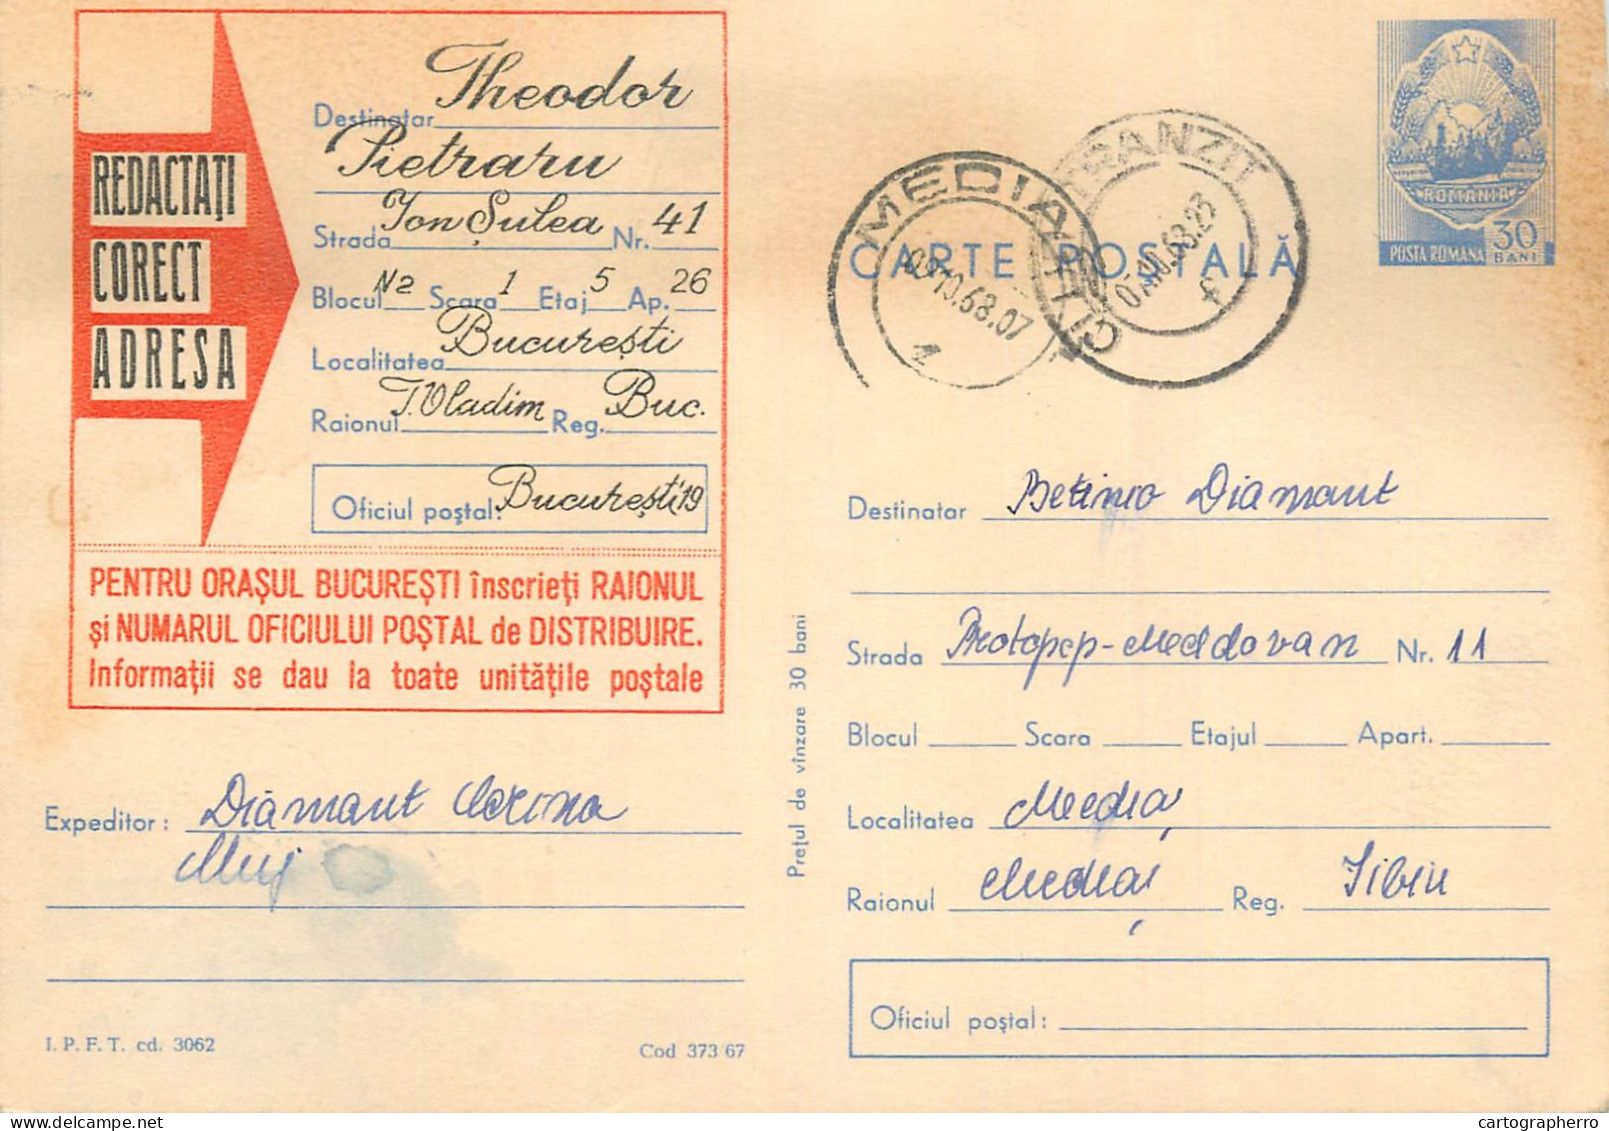 REDACTAȚI
CORECT
ADRESA
Destinatar Theodor
Pietraru
Strada Ion Șulea Nr. 41
Blocul N2 Scara 1 Etaj 5 Ap. 26
Localitatea București
Raionul T. Vladim Reg. Buc.
Oficiul poștal: București 19
PENTRU ORAȘUL BUCUREȘTI înscrieți RAIONUL
și NUMARUL OFICIULUI POȘTAL de DISTRIBUIRE.
Informații se dau la toate unitățile poștale
Expeditor: Diamant
Cluj
I. P. F. T. cd. 3062
Cod 373/67
Prețul de vînzare 30 bani
CARTE POȘTALĂ
MEDIAȘ
09.10.68.07
TRANZIT
CLUJ
ROMANIA
POSTA ROMANA 30
BANI
Destinatar Diamant
Strada Protopop Moldovan Nr. 11
Blocul Scara Etajul Apart.
Localitatea Mediaș
Raionul Mediaș Reg. Sibiu
Oficiul poștal:
cartographerro